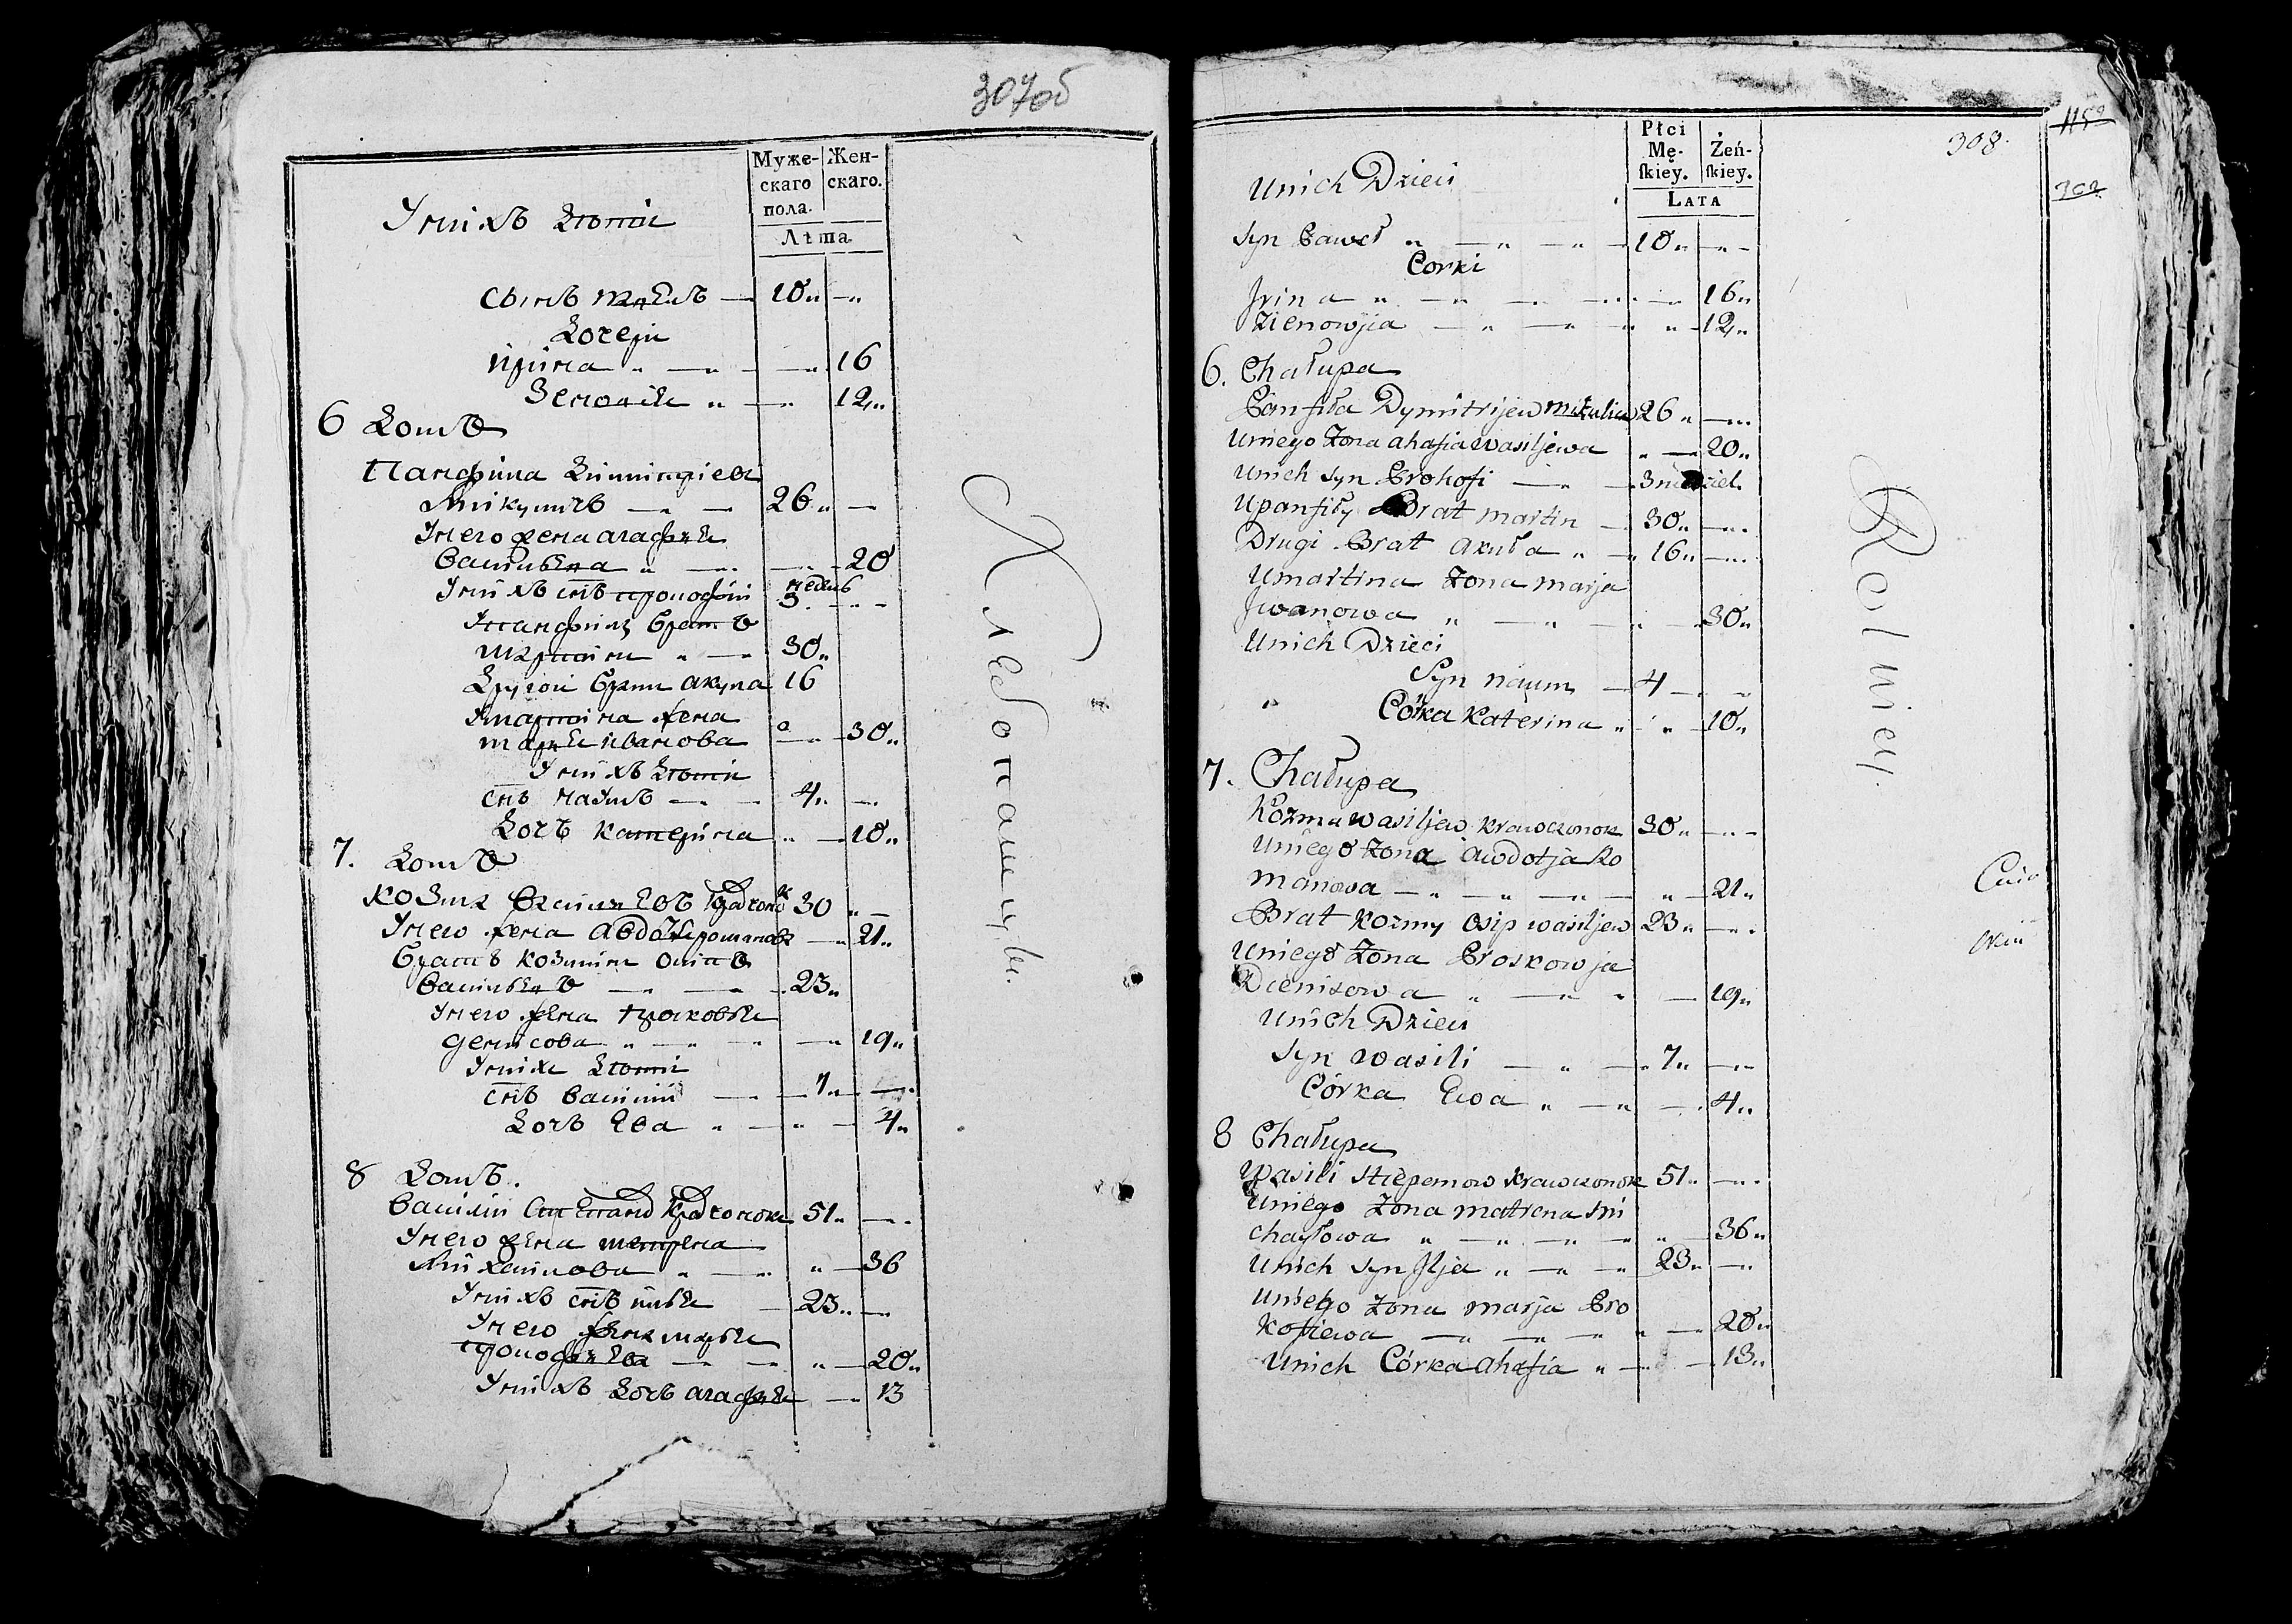 307об
Муже-
скаго
пола.
Жен-
скаго.
Лѣта
Унихъ дѣти
Сынъ 10 „ — „
дочери
Ирина „ — „ — „ 16
Зеновия „ — „ 12 „
6 домъ
Панфила димитриевъ
Микуличъ — „ — 26 „ —
Унего жена агафия
Васильева „ — „ — „ 20
Унихъ снъ прокофій 3 неделъ — „ —
Упанфилы братъ
мартинъ „ — „ 30 „
другой братъ акула 16
Умартина жена
марья иванова — „ 30 „
Унихъ дѣти
снъ наумъ — „ — 4 „ — „
дочь катерина „ — 10 „
7. домъ
козма васильевъ кравчонокъ 30 „ —
Унего жена авдотья романова — „ 21 „
братъ козмы осипъ
васильевъ — „ — „ 23 „
Унего жена просковья
денисова „ — „ — „ — „ 19 „
Унихъ дѣти
снъ василий — „ — 7 „ — „
дочь Ева „ — „ — 4 „
8 домъ.
Василий Степановъ кравчонокъ 51 „ — „
Унего жена матрена
Михайлова „ — „ „ — 36
Унихъ снъ илья — 23 „ —
Унего жена марья
прокофьева — „ — „ „ — 20 „
Унихъ дочь агафья — „ 13
Хлебопашцы.
308.
1150
302
Płci
Mę-
ſkiey.
Żeń-
ſkiey.
LATA
Unich Dzieci
Syn Paweł „ — „ — „ — 10 „ — „ —
Corki
Jrina „ — „ — „ — 16 „
Zienowjia — „ — „ „ — 12 „
6. Chałupa
Panfiła Dymitrijew Mikulicz 26 „ — „
Uniego Zona ahafia wasiljewa „ — 20 „
Unich Syn Prokofi — „ — 3 niedziel.
Upanfiły Brat martin — 30 „ — „
Drugi Brat akuła „ — „ 16 „ — „
Umartina Zona marja
Jwanowa „ — „ — „ — 30 „
Unich Dzieci
Syn naum — 4 — „
Córka Katerina „ „ — 10 „
7. Chałupa
Kozma wasiljew krawczonok 30 „ — „ —
Uniego Zona awdotja Ro
manowa — „ — „ — „ — „ — 21 „
Brat kozmy Osip wasiljew 23 „ — „
Uniego Zona Proskowja
Dienisowa „ — „ „ — 19 „
Unich Dzieci
Syn wasili — „ — „ 7 „ — „ —
Córka Ewa „ — „ — 4 „
8 Chałupa
Wasili Stiepanow krawczonok 51 „ — „
Uniego Zona matrena Mi
chayłowa „ — „ — „ — „ — 36 „
Unich Syn Jlja „ — „ — „ 23 „ — „
Uniego Zona marja Pro
kofiewa — „ — „ — „ „ — 20 „
Unich Córka Ahafia „ — „ — 13 „
Rolnicy.